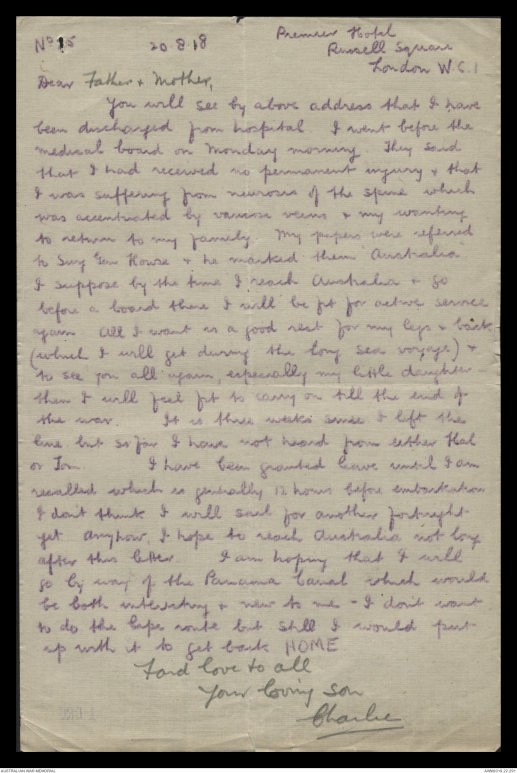 No 15 20.8.18 Premier Hotel
Russell Square
London W.C.1
Dear Father & Mother,
You will see by above address that I have
been discharged from hospital I went before the
medical board on Monday morning. They said
that I had received no permanent injury & that
I was suffering from neurosis of the spine which
was accentuated by varicose veins & my wanting
to return to my family My papers were referred
to Surg Gen House & he marked them "Australia"
I suppose by the time I reach Australia & go
before a board there I will be fit for active service
again All I want is a good rest for my legs & back
(which I will get during the long sea voyage) &
to see you all again, especially my little daughter
then I will feel fit to carry on till the end of
the war. It is three weeks since I left the
line but so far I have not heard from either Hal
or Tom I have been granted leave until I am
recalled which is generally 12 hours before embarkation
I dont think I will sail for another fortnight
yet anyhow I hope to reach Australia not long
after this letter. I am hoping that I will
go by way of the Panama Canal which would
be both interesting & new to me - I dont want
to do the Cape route but still I would put
up with it to get back HOME
Fond love to all
Your loving son
Charlie
AUSTRALIAN WAR MEMORIAL